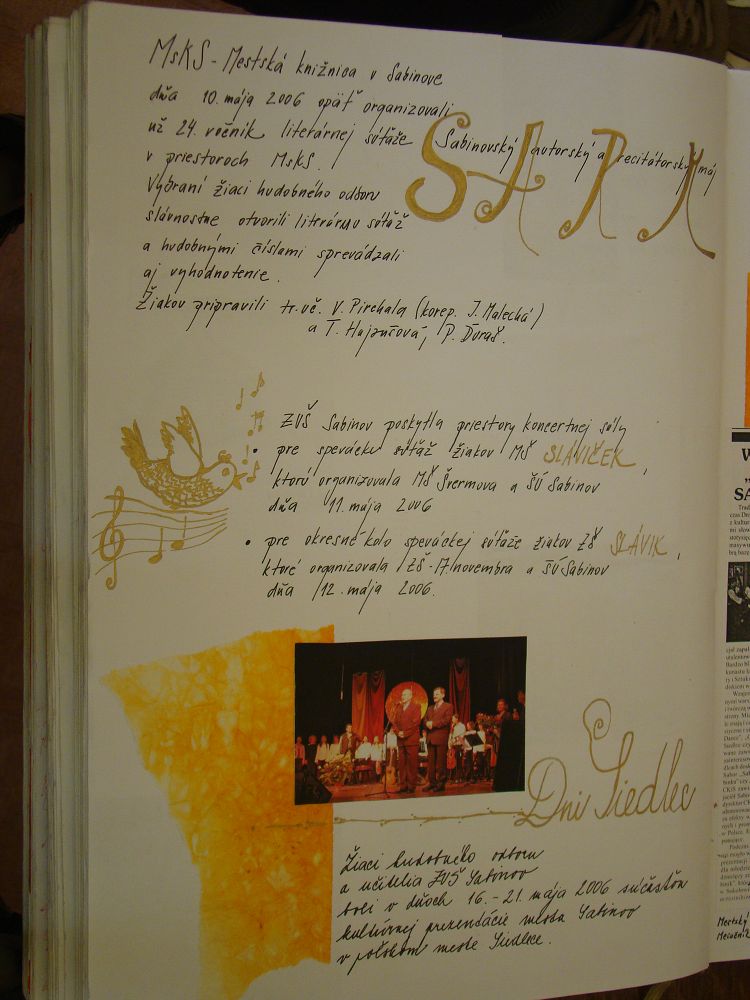 MsKS - Mestská knižnica v Sabinove
dňa 10. mája 2006 opäť organizovali
už 24. ročník literárnej súťaže Sabinovský autorský a recitátorský máj
SARM
v priestoroch MsKS.
Vybraní žiaci hudobného odboru
slávnostne otvorili literárnu súťaž
a hudobnými číslami sprevádzali
aj vyhodnotenie.
Žiakov pripravili tr.uč. V. Pirchala (korep. J. Malechá)
a T. Hajzušová, P. Ďuraš.
ZUŠ Sabinov poskytla priestory koncertnej sály
• pre spevácku súťaž žiakov MŠ SLÁVIČEK,
ktorú organizovala MŠ Švermova a ŠÚ Sabinov
dňa 11. mája 2006
• pre okresné kolo speváckej súťaže žiakov ZŠ SLÁVIK,
ktoré organizovala ZŠ - 17. novembra a ŠÚ Sabinov
dňa 12. mája 2006.
Dni Siedlec
Žiaci hudobného odboru
a učitelia ZUŠ Sabinov
boli v dňoch 16. - 21. mája 2006 súčasťou
kultúrnej prezentácie mesta Sabinov
v poľskom meste Siedlece.
Mestský